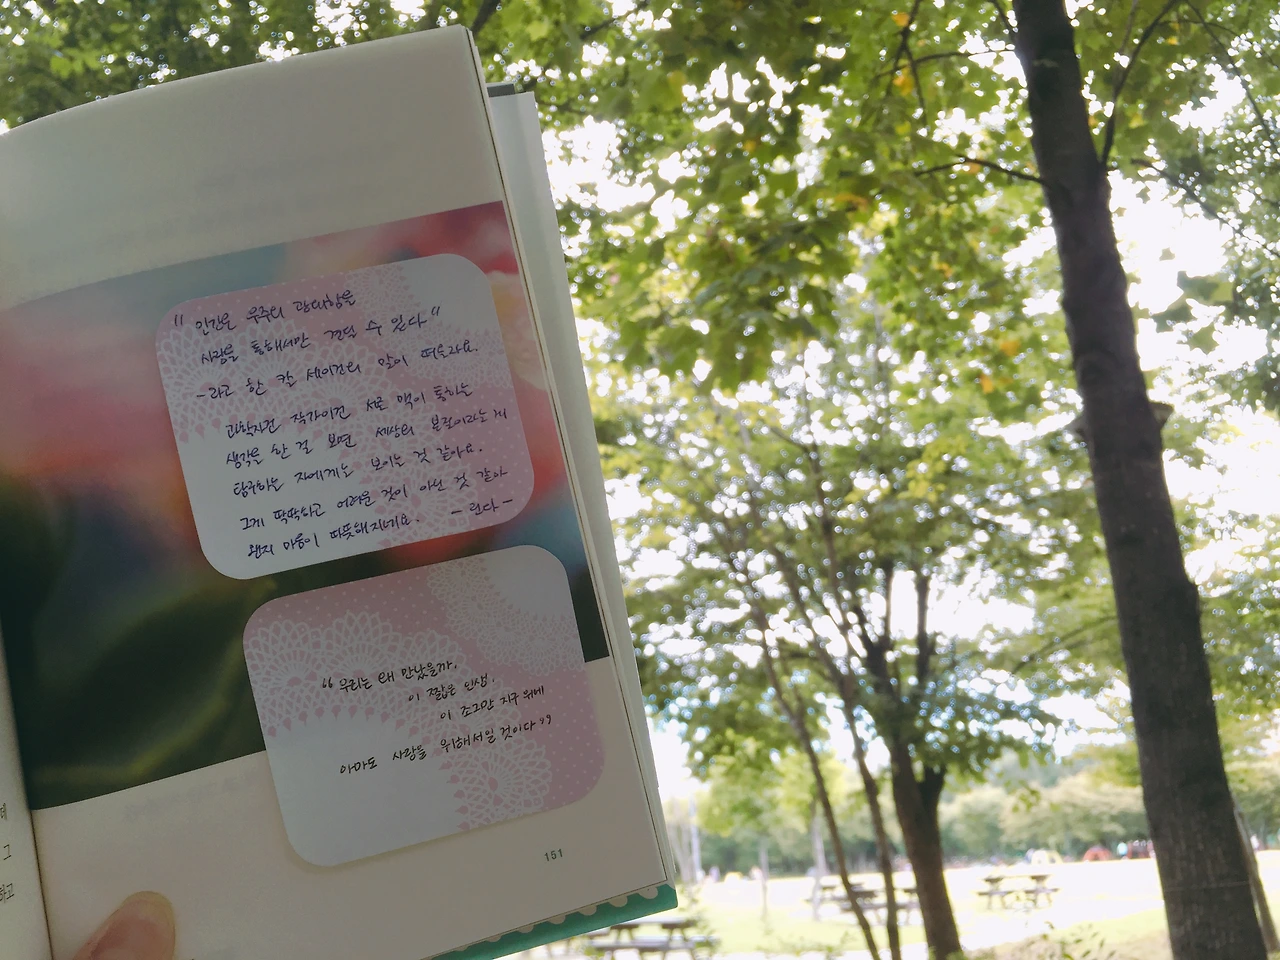 "인간은 우주의 광대함을
사랑을 통해서만 견딜 수 있다"
-라고 한 칼 세이건의 말이 떠올라요.
과학자건 작가이건 서로 맥이 통하는
생각을 한 걸 보면 세상의 본질이라는 게
탐구하는 자에게는 보이는 것 같아요.
그게 딱딱하고 어려운 것이 아닌 것 같아
왠지 마음이 따뜻해지네요. - 린다 -
"우리는 왜 만났을까.
이 짧은 인생.
이 조그만 지구 위에
아마도 사랑을 위해서일 것이다"
151
데
그
하고